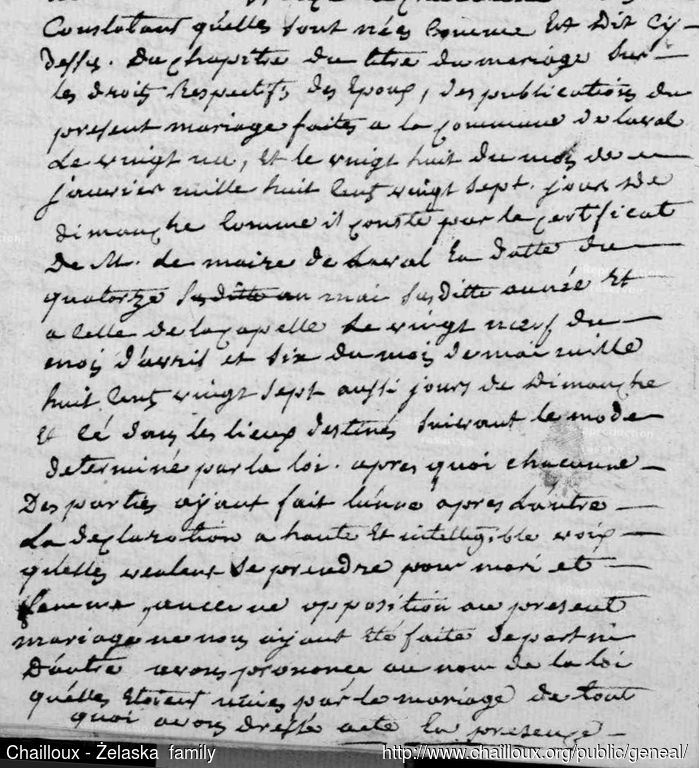 Constatant qu'elles sont nées comme Est Dit Cy
dessus. Du chapitre du titre du mariage sur
les droits Respectifs des Epoux, des publications du
present mariage faites a la Commune de laval
Le vingt un, Et le vingt huit du mois de
janvier mille huit Cent vingt sept. jours de
dimanche Comme il Conste par le Certificat
De M. Le maire de Laval En datte du
quatorze susditte au mai susditte année Et
a Celle de lacapelle Le vingt neuf du
mois d'avril et six du mois de mai mille
huit Cent vingt sept aussi jours de Dimanche
Et cé dans les lieux destinés suivant le mode
determiné par la loi. apres quoi chacunne
Des parties ayant fait l'unne apres Lautre
La declaration a haute Et intelligible voix
qu'elles veulent se prendre pour mari et
femme, aucunne opposition au present
mariage ne nous ayant Eté faite de part ni
D'autre avons prononcé au nom de la loi
qu'elles Etoient unies par le mariage de tout
quoi avons dressé acte En presence
Chailloux - Żelaska family http://www.chailloux.org/public/geneal/